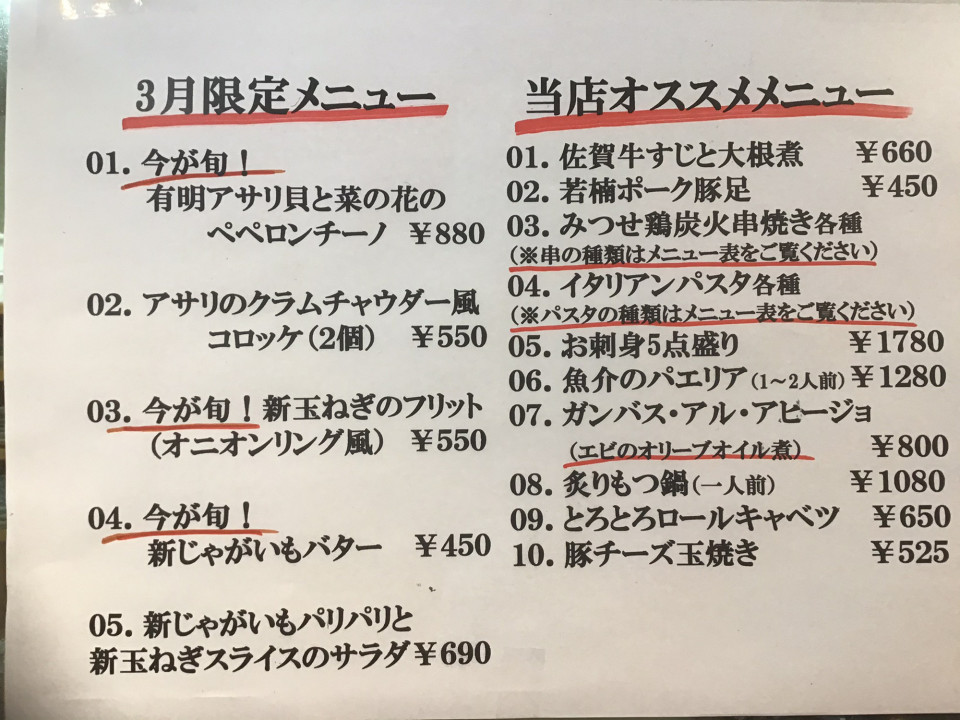 3月限定メニュー
01. 今が旬！
有明アサリ貝と菜の花の
ペペロンチーノ ￥880
02. アサリのクラムチャウダー風
コロッケ(2個) ￥550
03. 今が旬！新玉ねぎのフリット
(オニオンリング風) ￥550
04. 今が旬！
新じゃがいもバター ￥450
05. 新じゃがいもパリパリと
新玉ねぎスライスのサラダ ￥690
当店オススメメニュー
01. 佐賀牛すじと大根煮 ￥660
02. 若楠ポーク豚足 ￥450
03. みつせ鶏炭火串焼き各種
(※串の種類はメニュー表をご覧ください)
04. イタリアンパスタ各種
(※パスタの種類はメニュー表をご覧ください)
05. お刺身5点盛り ￥1780
06. 魚介のパエリア(1～2人前) ￥1280
07. ガンバス・アル・アヒージョ
(エビのオリーブオイル煮) ￥800
08. 炙りもつ鍋(一人前) ￥1080
09. とろとろロールキャベツ ￥650
10. 豚チーズ玉焼き ￥525